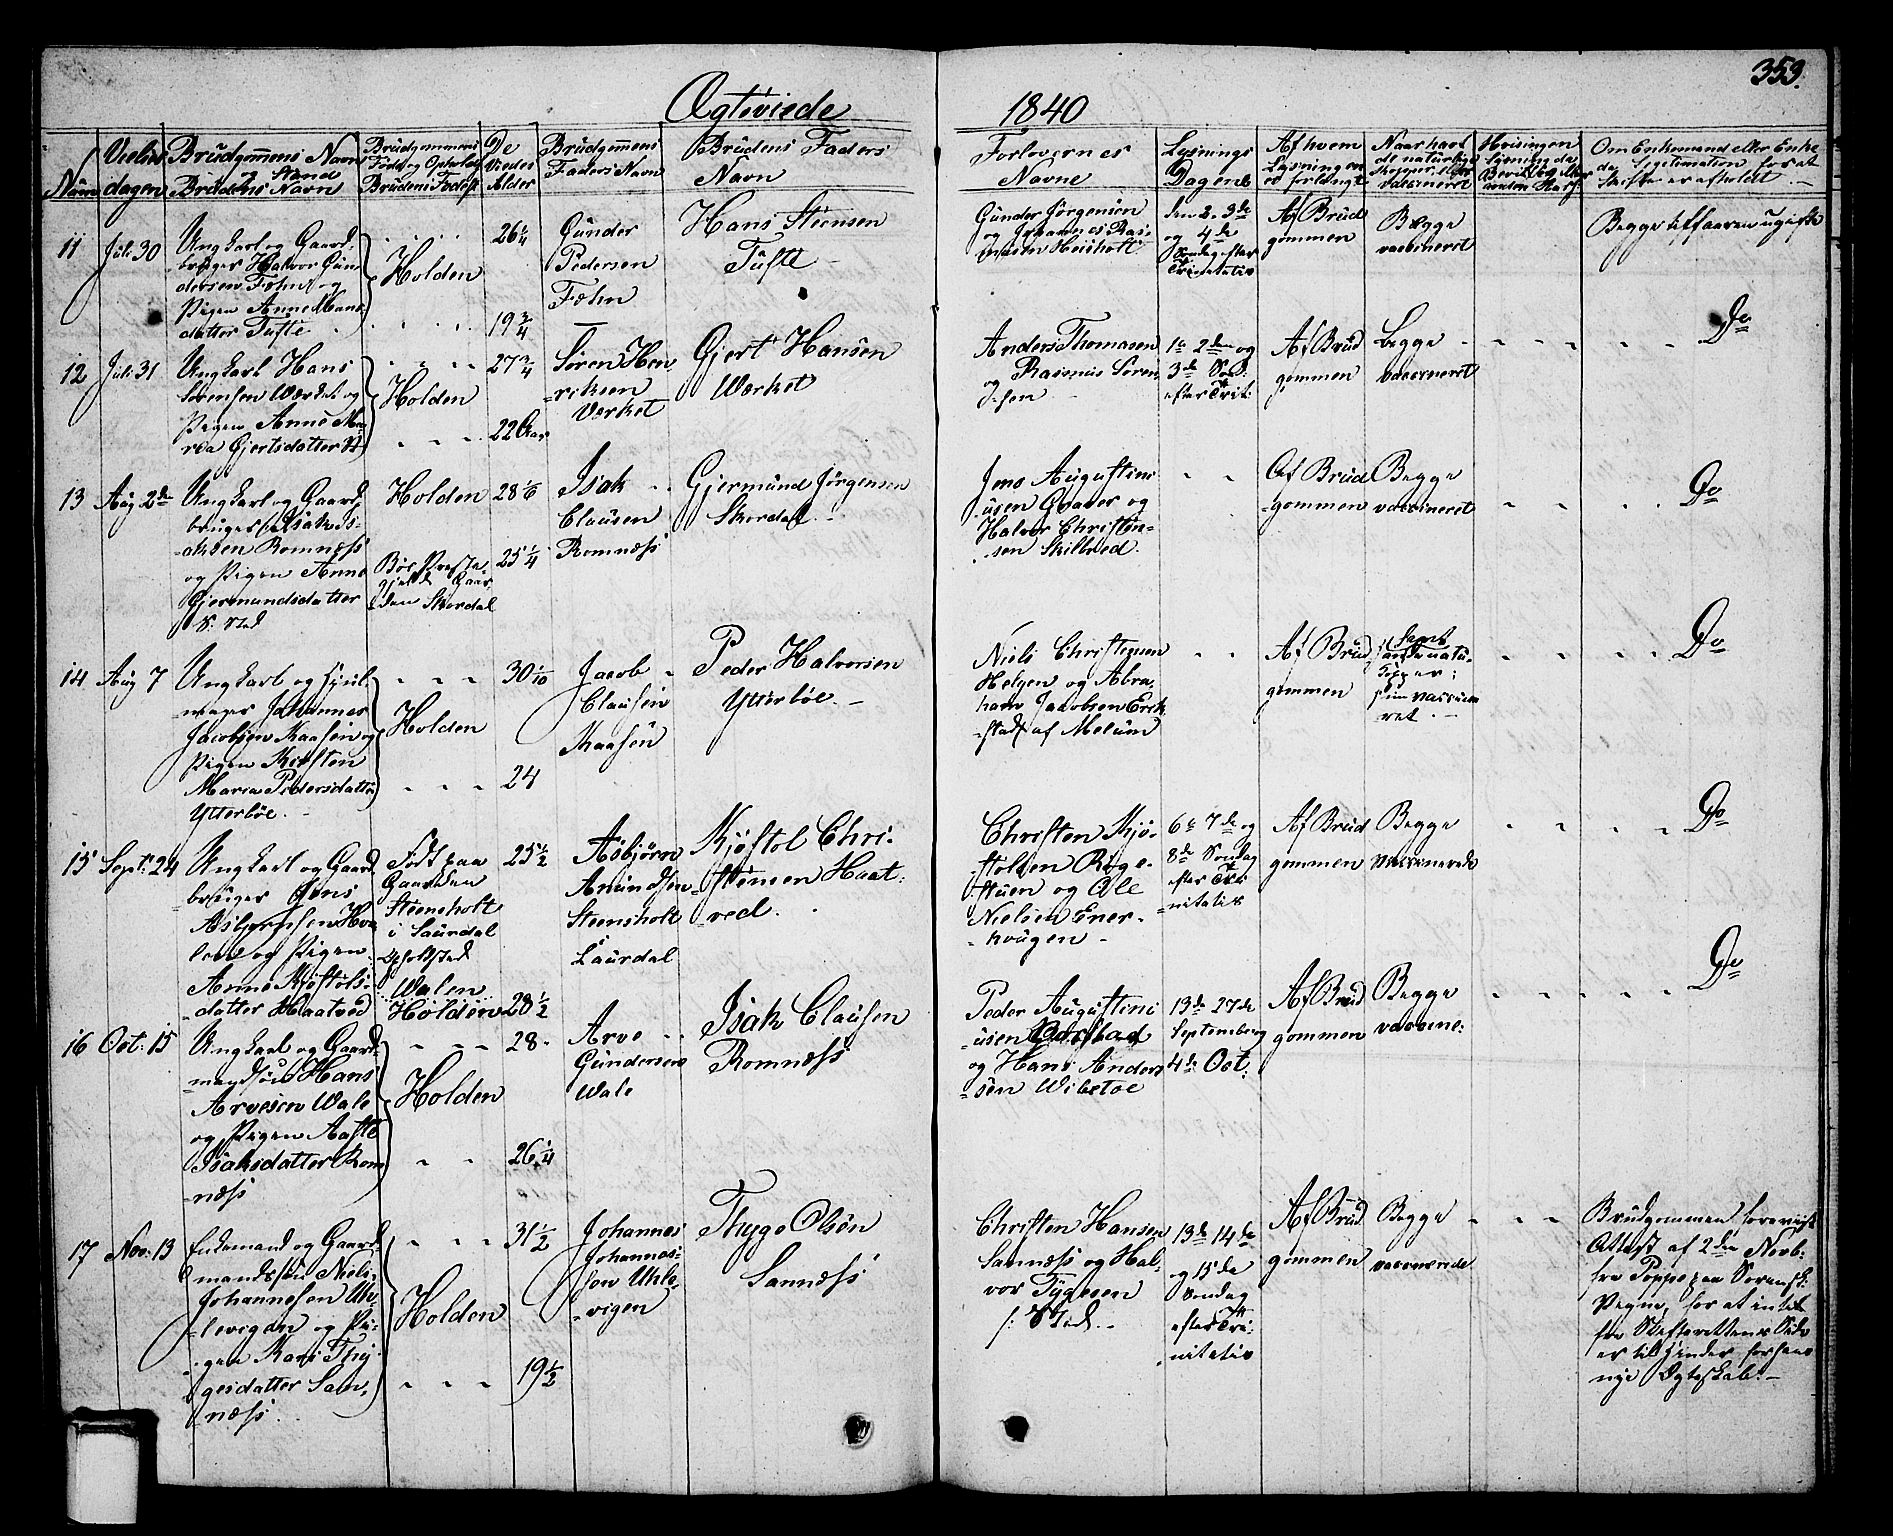 353.
Ægteviede
1840
Num
Vielses
dagen
Brudgommens Navn
og Stand
Brudens Navn
Brudgommens
Fødst. og Opholdst.
Brudens Fødst.
De
Viedes
Alder
Brudgommens
Faders Navn
Brudens Faders
Navn
Forlovernes
Navne
Lysnings
Dagene
Af hvem
Lysningen
er forlangt
Naar havt
de naturlige
Kopper, eller
vaccineret
Om Enkemand eller Enke
da Legitimation for at
Skifte er afholdt.
11
Juli 30
Ungkarl og Gaard-
bruger Halvor Gun
dersen Fæhn og
Pigen Anne Hans
datter Tufte
Holden
26 1/4
19 3/4
Gunder
Pedersen
Fæhn
Hans Steensen
Tufte
Gunder Jørgensen
og Johannes Ras-
musen Heisholt
den 2. 3de
og 4de
Søndag efter
Trinitatis
Af Brud
gommen
Begge
vaccineret
Begge tilforn ugifte
12
Juli 31
Ungkarl Hans
Sørensen Værket og
Pigen Anne Ma-
ria Gjertsdatter
Holden
27 3/4
22 Aar
Søren Hen
riksen
Værket
Gjert Hansen
Værket
Anders Thomasen
og Rasmus Søren
-sen
1e 2den og
3de Sønd:
efter Trit:
Af Brud
gommen
Begge
vaccineret
Do
13
Aug 2de
Ungkarl og Gaard
bruger Isak Is-
-aksen Romnæss
og Pigen Anne
Gjermundsdatter
S. sted
Holden
Böe Præste
gjeld Gaar
den Skordal
28 1/6
25 1/4
Isak
Clausen
Romnæss
Gjermund Jørgensen
Skordal
Jens Augustini
-usen Qvaver og
Halvor Christen-
sen Skilbred.
Af Brud
-gommen
Begge
vaccineret
Do
14
Aug 7
Ungkarl og Hjul-
-mager Johannes
Jacobsen Kaasen og
Pigen Kirsten
Maria Pedersdatter
Ytterböe.
Holden
30 1/10
24
Jacob
Clausen
Kaasen
Peder Halvorsen
Ytterböe.
Niels Christensen
Helgen og Abra
ham Jacobsen Erik
-stad af Melum
Af Brud
gommen
Do
15
Sept: 24
Ungkarl og Gaard
bruger Jens
Asbjørnsen Hva
len og Pigen
Anne Kjøstols-
datter Haatved
Født paa
Gaarden
Steensholt
i Laurdal
Opholdsted
Walen
Holden
25 1/2
28 1/2
Asbjørn
Amundsen
Steensholt
i Laurdal
Kjøstol Chri-
-stensen Haat-
ved.
Christen Kjø-
-stolsen Rige-
stuen og Ole
Nielsen Ener-
-haugen
6e 7de og
8de Søndag
efter Tri
-nitatis
Af Brud
gommen
Begge
vaccinerede
Do
16
Oct: 15
Ungkarl og Gaard-
mandssøn Hans
Arvesen Wale
og Pigen Aaste
Isaksdatter Rom
-næss
Holden
28
26 1/4
Arve
Gundersen
Wale
Isak Clausen
Romnæss
Peder Augustini
-usen
og Hans Anders
-sen Wibetoe
13de 27de
September og
4de Oct:
Af Brud
gommen
Begge
vaccine:
Do
17
Nov: 13
Enkemand og Gaard
mandssøn Niels
Johannesen Uh-
-levigen og Pi-
-gen Kari Thy-
gesdatter San-
-næss.
Holden
31 1/2
19 1/2
Johannes
Johannes-
sen Uhle-
-vigen
Thyge Olsen
Sannæss
Christen Hansen
Sannæss og Hal-
vor Tygesen
s: Sted.
13de 14de
og 15de
Søndag
efter Tri-
nitatis
Af Brud
gommen
Begge
vaccinerede
Brudgommen foreviist
Attest af 2den Novb:
fra Poppe paa Sorensk:
Vegne, for at intet
fra Skifterettens Side
er til Hinder for hans
nye Ægteskab.